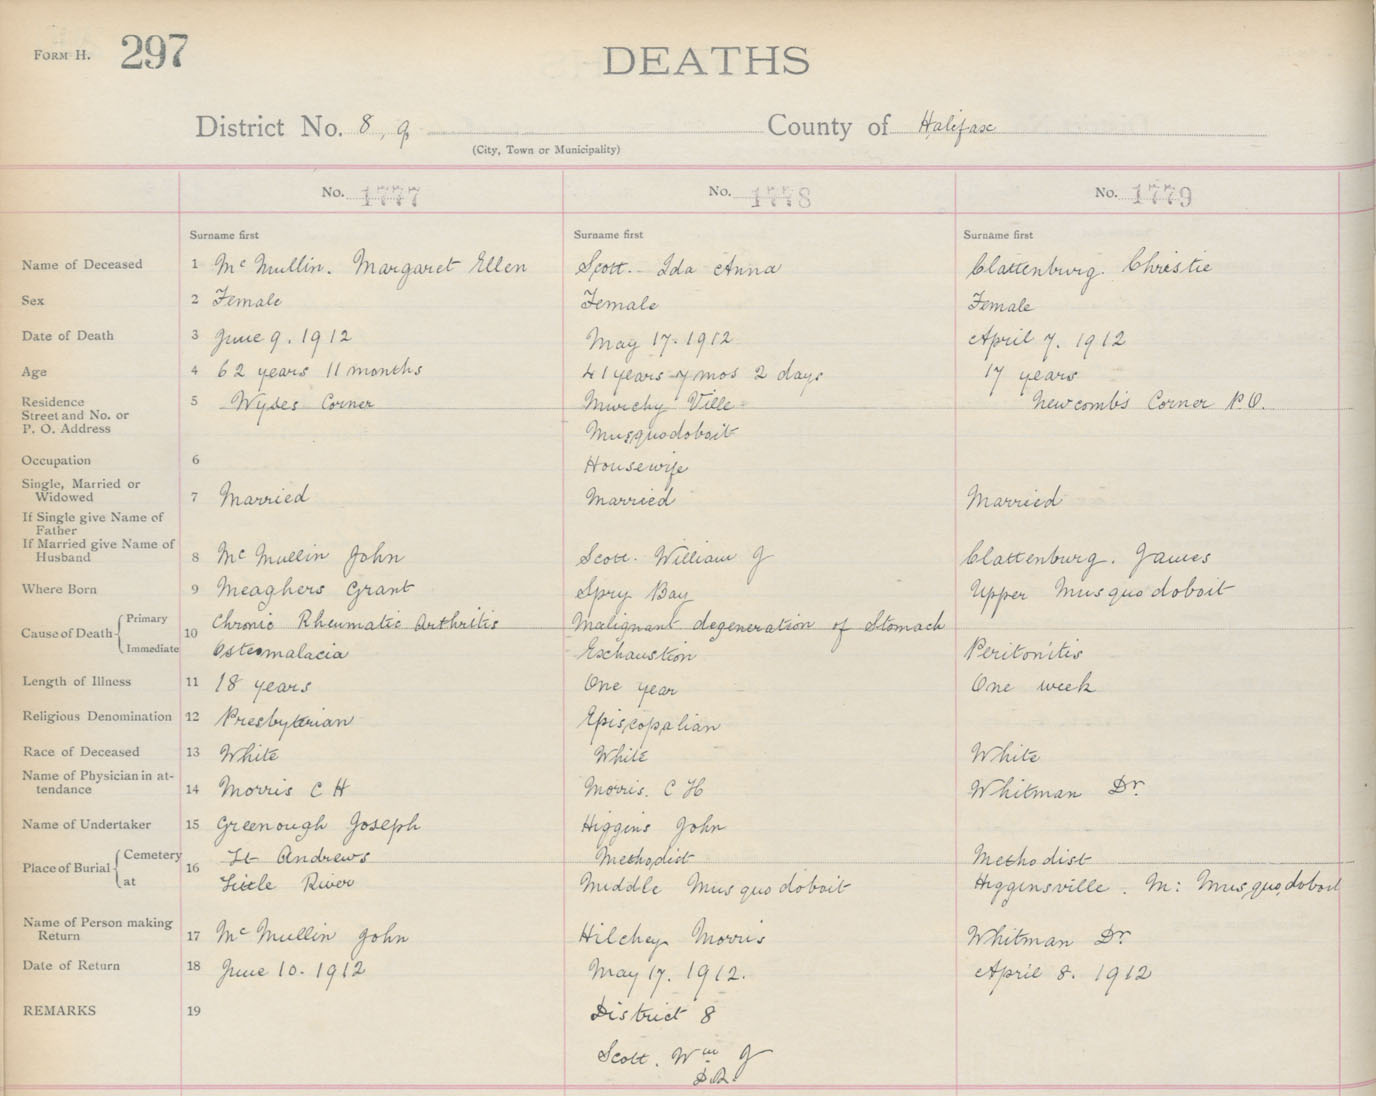 FORM H. 297
DEATHS
District No. 8, g County of Halifax
(City, Town or Municipality)
No. 1777 No. 1778 No. 1779
Surname first Surname first Surname first
Name of Deceased 1 Mc Mullin. Margaret Ellen Scott. Ida Anna Clattenburg. Christie
Sex 2 Female Female Female
Date of Death 3 June 9. 1912 May 17. 1912 April 7. 1912
Age 4 62 years 11 months 41 years 7 mos 2 days 17 years
Residence 5 Wyses Corner Murchy Ville Newcomb's Corner P.O.
Street and No. or
P. O. Address Musquodoboit
Occupation 6 Housewife
Single, Married or
Widowed 7 Married Married Married
If Single give Name of
Father
If Married give Name of
Husband 8 Mc Mullin John Scott. William J Clattenburg. James
Where Born 9 Meaghers Grant Spry Bay Upper Musquodoboit
Cause of Death Primary 10 Chronic Rheumatic Arthritis Malignant degeneration of Stomach
Immediate Osteomalacia Exhaustion Peritonitis
Length of Illness 11 18 years One year One week
Religious Denomination 12 Presbyterian Episcopalian
Race of Deceased 13 White White White
Name of Physician in at-
tendance 14 Morris C H Morris. C H Whitman Dr.
Name of Undertaker 15 Greenough Joseph Higgins John
Place of Burial Cemetery 16 St Andrews Methodist Methodist
at Little River Middle Musquodoboit Higginsville. M: Musquodoboit
Name of Person making
Return 17 Mc Mullin John Hilchey Morris Whitman Dr
Date of Return 18 June 10. 1912 May 17. 1912. April 8. 1912
REMARKS 19 District 8
Scott. Wm J
D.R.